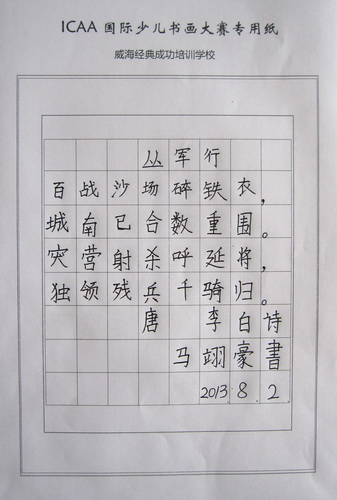 ICAA 国际少儿书画大赛专用纸
威海经典成功培训学校
从军行
百战沙场碎铁衣，
城南已合数重围。
突营射杀呼延将，
独领残兵千骑归。
唐 李白诗
马翊豪書
2013 8.2